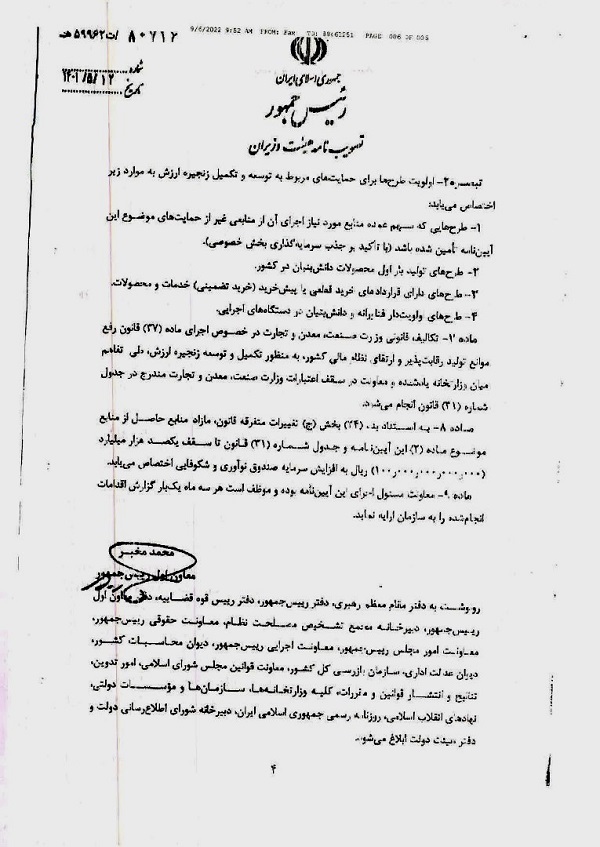 9/6/2022 9:52 AM FROM: Fax TO: 89662251 PAGE: 006 OF 006
۸۰۷۱۲ /ت۵۹۹۶۲هـ
شماره
۱۴۰۱/۵/۱۲
تاریخ
جمهوری اسلامی ایران
رئیس جمهور
تصویب نامه هیئت وزیران
تبصره۲- اولویت طرح‌ها برای حمایت‌های مربوط به توسعه و تکمیل زنجیره ارزش به موارد زیر
اختصاص می‌یابد:
۱- طرح‌هایی که سهم عمده منابع مورد نیاز اجرای آن از منابعی غیر از حمایت‌های موضوع این
آیین‌نامه تأمین شده باشد (با تاکید بر جذب سرمایه‌گذاری بخش خصوصی).
۲- طرح‌های تولید بار اول محصولات دانش‌بنیان در کشور.
۳- طرح‌های دارای قراردادهای خرید قطعی یا پیش‌خرید (خرید تضمینی) خدمات و محصولات.
۴- طرح‌های اولویت‌دار فناورانه و دانش‌بنیان در دستگاه‌های اجرایی.
ماده ۷- تکالیف قانونی وزارت صنعت، معدن و تجارت در خصوص اجرای ماده (۳۷) قانون رفع
موانع تولید رقابت‌پذیر و ارتقای نظام مالی کشور، به منظور تکمیل و توسعه زنجیره ارزش، طی تفاهم
میان وزارتخانه یادشده و معاونت در سقف اعتبارات وزارت صنعت، معدن و تجارت مندرج در جدول
شماره (۳۱) قانون انجام می‌شود.
ماده ۸- به استناد بند (۲۴) بخش (ج) تغییرات متفرقه قانون، مازاد منابع حاصل از منابع
موضوع ماده (۲) این آیین‌نامه و جدول شماره (۳۱) قانون تا سقف یکصد هزار میلیارد
(۱۰۰٫۰۰۰٫۰۰۰٫۰۰۰٫۰۰۰) ریال به افزایش سرمایه صندوق نوآوری و شکوفایی اختصاص می‌یابد.
ماده ۹- معاونت مسئول اجرای این آیین‌نامه بوده و موظف است هر سه ماه یک‌بار گزارش اقدامات
انجام‌شده را به سازمان ارایه نماید.
محمد مخبر
معاون اول رییس‌جمهور
رونوشت به دفتر مقام معظم رهبری، دفتر رییس‌جمهور، دفتر رییس قوه قضاییه، دفتر معاون اول
رییس‌جمهور، دبیرخانه مجمع تشخیص مصلحت نظام، معاونت حقوقی رییس‌جمهور،
معاونت امور مجلس رییس‌جمهور، معاونت اجرایی رییس‌جمهور، دیوان محاسبات کشور،
دیوان عدالت اداری، سازمان بازرسی کل کشور، معاونت قوانین مجلس شورای اسلامی، امور تدوین،
تنقیح و انتشار قوانین و مقررات، کلیه وزارتخانه‌ها، سازمان‌ها و مؤسسات دولتی،
نهادهای انقلاب اسلامی، روزنامه رسمی جمهوری اسلامی ایران، دبیرخانه شورای اطلاع‌رسانی دولت و
دفتر هیئت دولت ابلاغ می‌شود.
۴